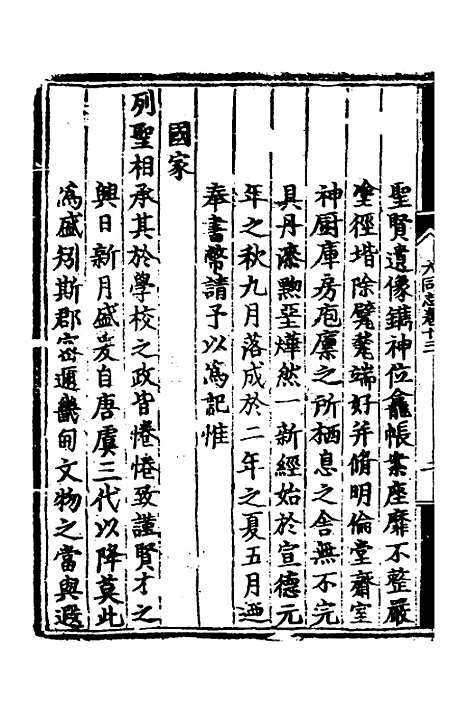 聖賢遺像鐫神位龕帳案座靡不整嚴
塗徑堦除甓甃端好并脩明倫堂齋室
神厨庫房庖廩之所栖息之舍無不完
具丹漆黝堊燁然一新經始於宣德元
年之秋九月落成於二年之夏五月迺
奉書幣請予以為記惟
國家
列聖相承其於學校之政皆惓惓致謹賢才之
興日新月盛爰自唐虞三代以降莫此
為盛矧斯郡密邇畿甸文物之當與遐
大同志卷十三